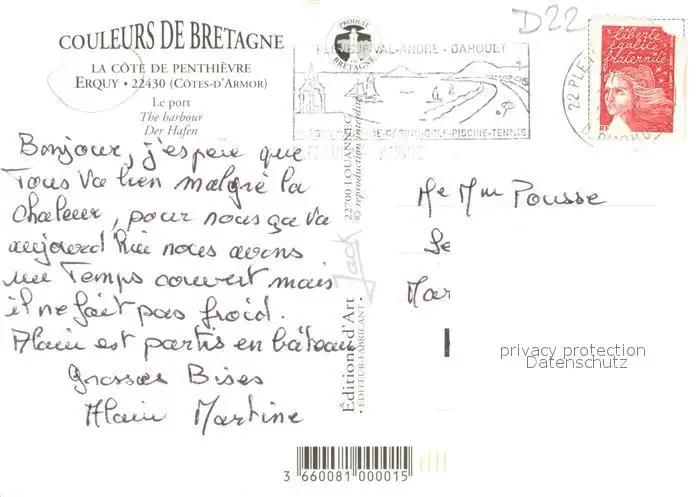 COULEURS DE BRETAGNE
LA CÔTE DE PENTHIÈVRE
ERQUY • 22430 (CÔTES-D'ARMOR)
Le port
The harbour
Der Hafen
Bonjour, j'espère que
Tous va bien malgré la
chaleur, pour nous ça va
aujourd'hui nous avons
un Temps couvert mais
il ne fait pas froid.
Alain est partis en bâteau
Grosses Bises
Alain Martine
PRODUIT
EN
BRETAGNE
VAL-ANDRE - DAHOUET
GOLF-PISCINE-TENNIS
Editions d'Art Jack 22700 LOUANNEC
• EDITEUR-FABRICANT • © reproduction interdite
3 660081 000015
D22
liberté
égalité
fraternité
RF
22 PLE
Me Mm Pousse
Se
Mar
privacy protection
Datenschutz